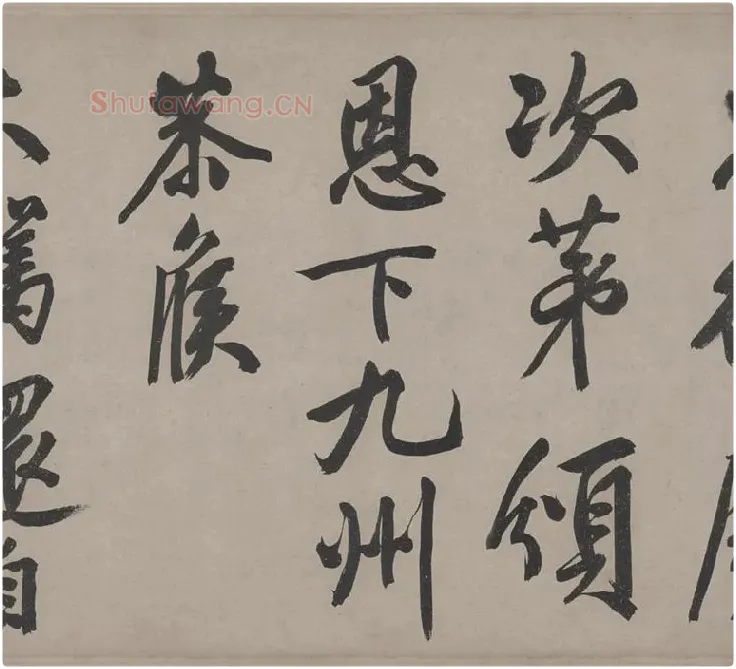 次苐頒
恩下九州
茶矦
還
Shufawang.CN